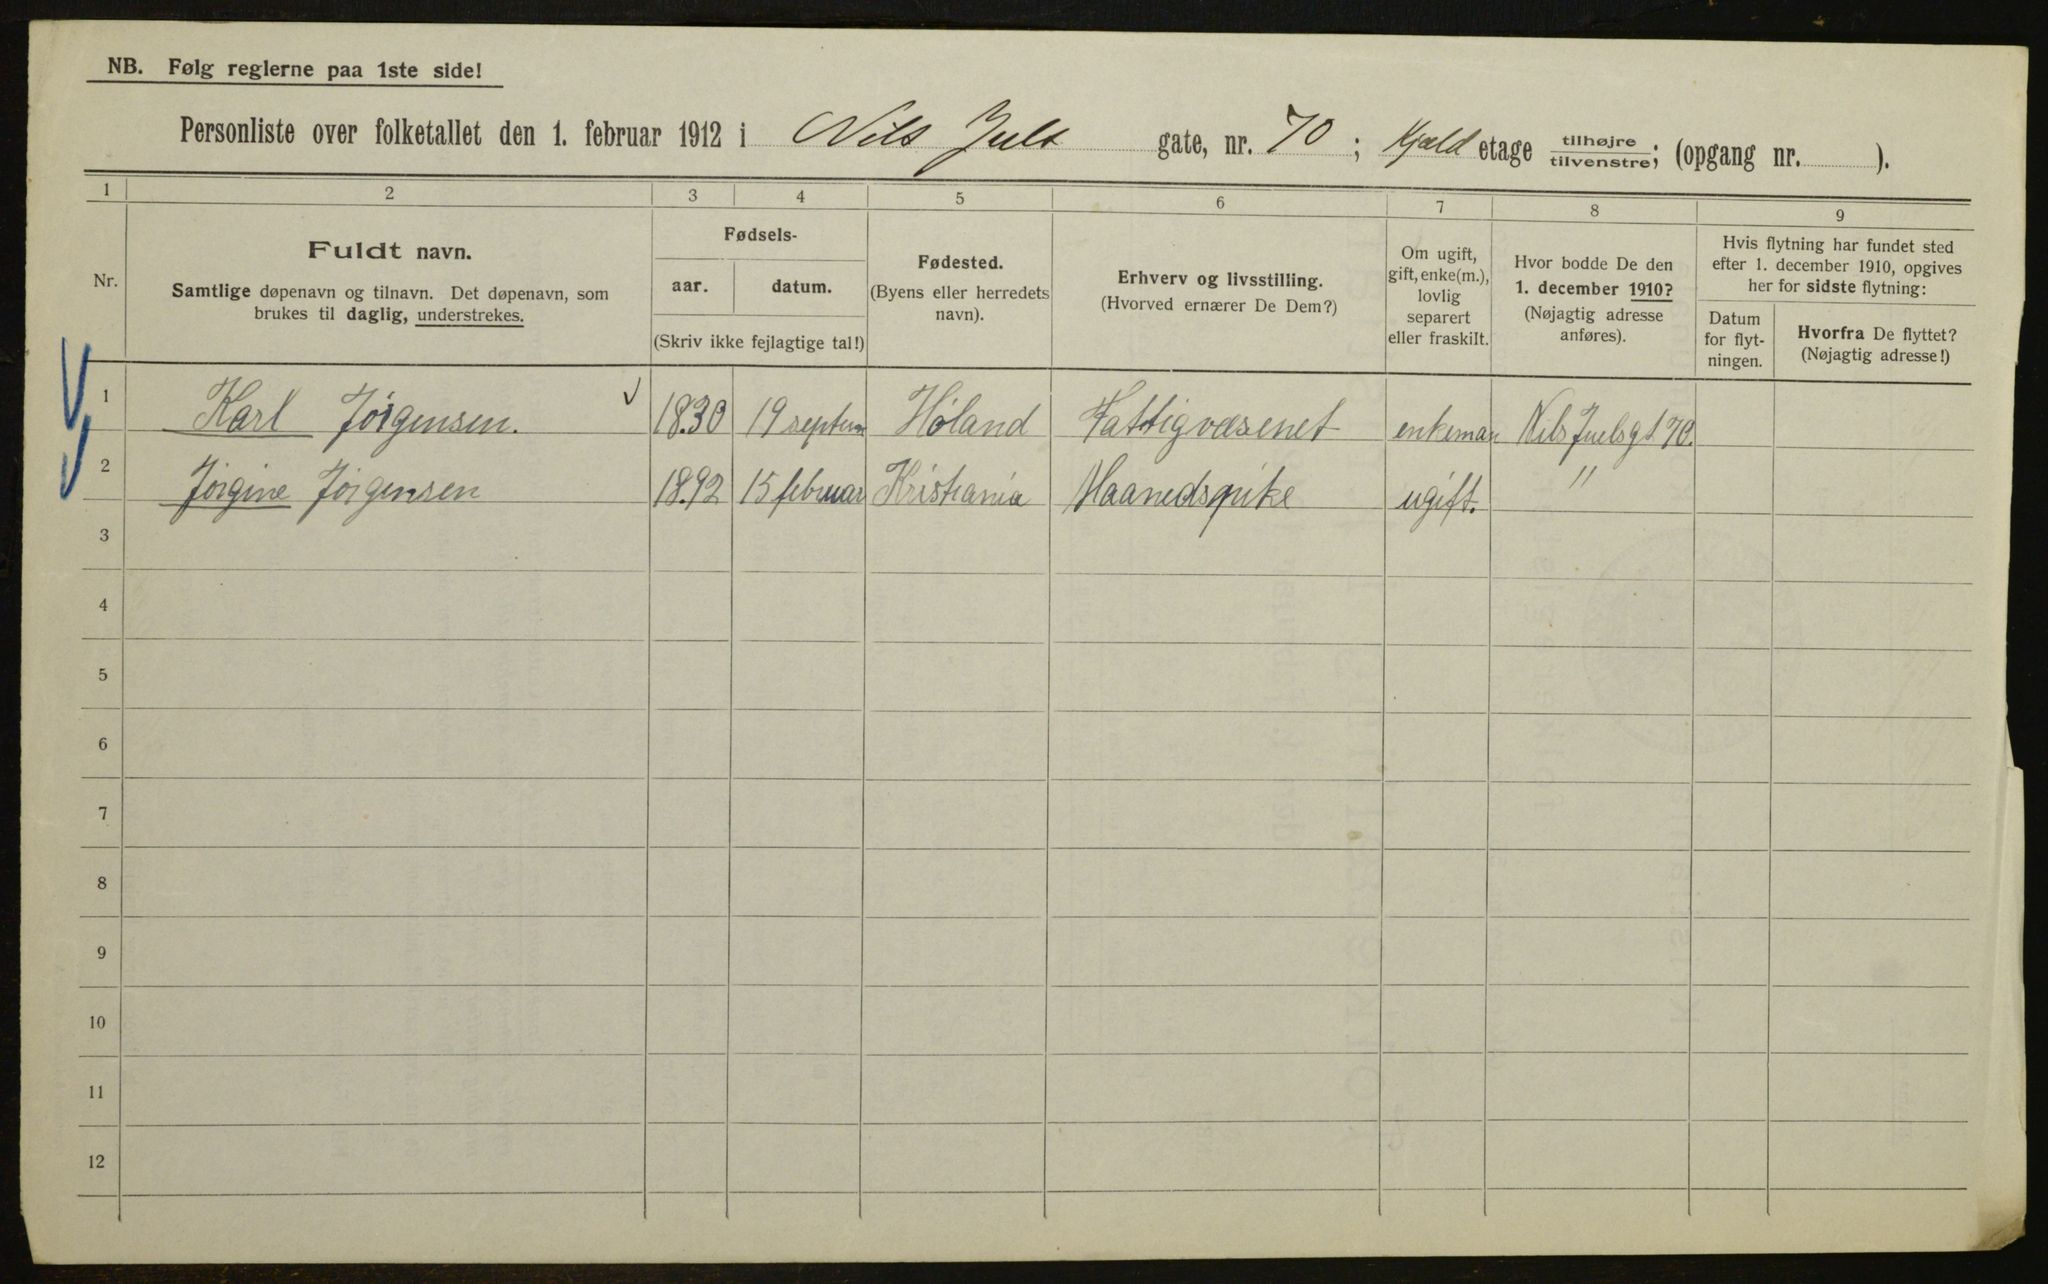 NB. Følg reglerne paa 1ste side!
Personliste over folketallet den 1. februar 1912 i Nils Juls gate, nr. 70 ; Kjæld etage tilhøjre tilvenstre ; (opgang nr. ).
1 2 3 4 5 6 7 8 9
Nr.
Fuldt navn.
Samtlige døpenavn og tilnavn. Det døpenavn, som
brukes til daglig, understrekes.
Fødsels-
aar. datum.
(Skriv ikke fejlagtige tal!)
Fødested.
(Byens eller herredets
navn).
Erhverv og livsstilling.
(Hvorved ernærer De Dem?)
Om ugift,
gift, enke(m.),
lovlig
separert
eller fraskilt.
Hvor bodde De den
1. december 1910?
(Nøjagtig adresse
anføres).
Hvis flytning har fundet sted
efter 1. december 1910, opgives
her for sidste flytning:
Datum
for flyt-
ningen.
Hvorfra De flyttet?
(Nøjagtig adresse!)
1 Karl Jørgensen. 1830 19 septem Høland Fattigvæsenet enkeman Nils Juelsgt 70.
2 Jørgine Jørgensen 1892 15 februar Kristiania Maanedspike ugift. "
3
4
5
6
7
8
9
10
11
12